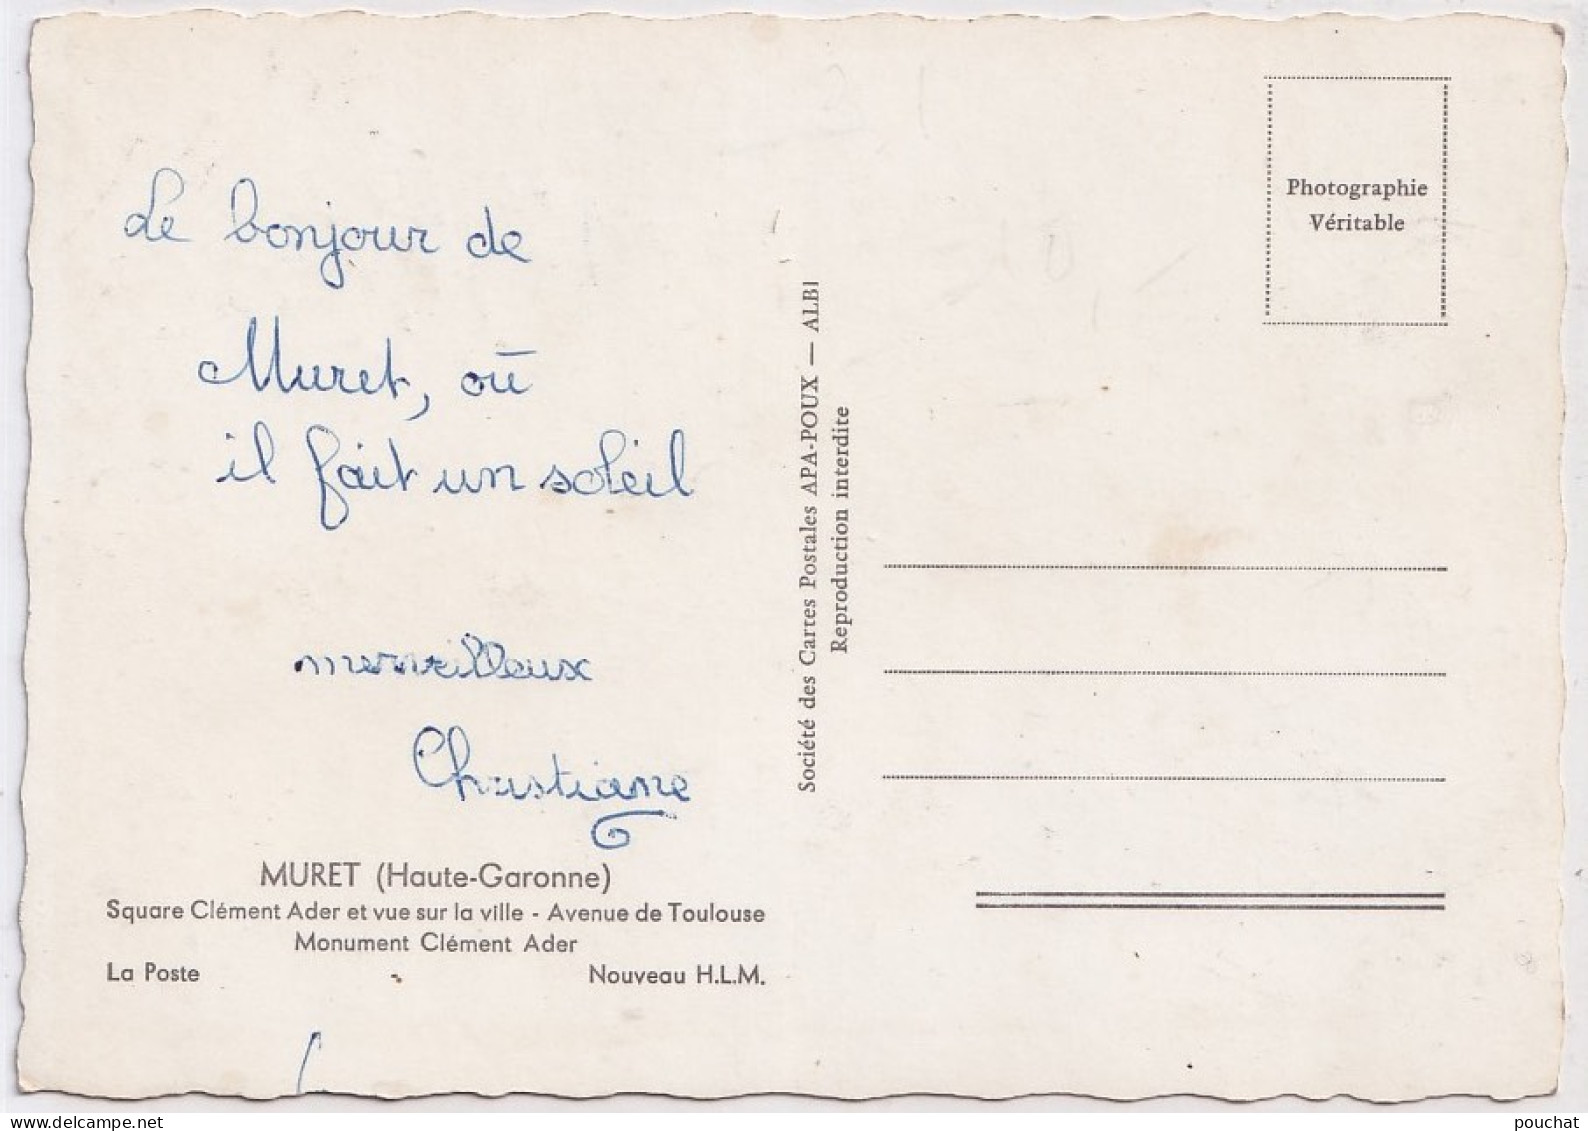 Le bonjour de
Muret, où
il fait un soleil
merveilleux
Christiane
MURET (Haute-Garonne)
Square Clément Ader et vue sur la ville - Avenue de Toulouse
Monument Clément Ader
La Poste - Nouveau H.L.M.
Société des Cartes Postales APA-POUX — ALBI
Reproduction interdite
Photographie
Véritable
www.delcampe.net
pouchat